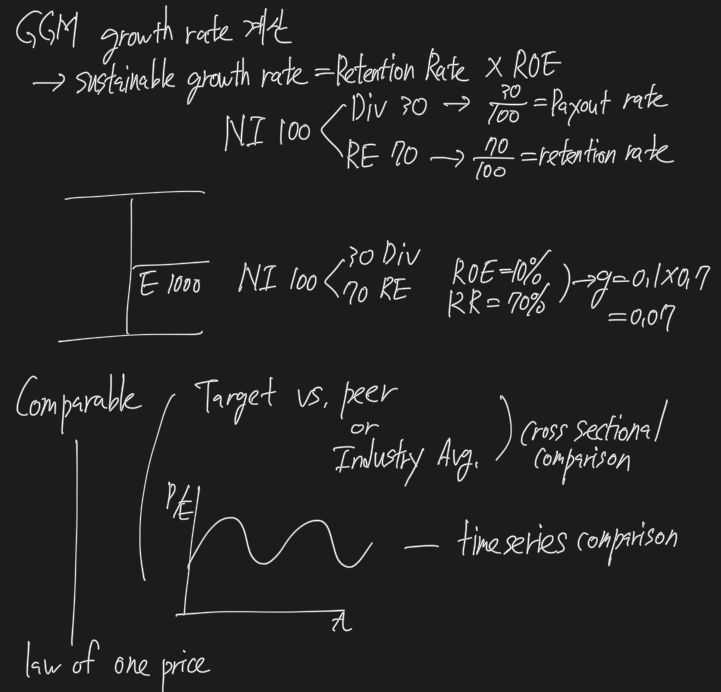 GGM growth rate 계산
→ sustainable growth rate = Retention Rate × ROE
NI 100 < Div 30 → 30/100 = Payout rate
RE 70 → 70/100 = retention rate
E 1000 NI 100 < 30 Div ROE=10% ) → g=0.1×0.7
70 RE RR=70% =0.07
Comparable ( Target vs. peer
or
Industry Avg. ) cross sectional
comparison
P/E
— time series comparison
law of one price